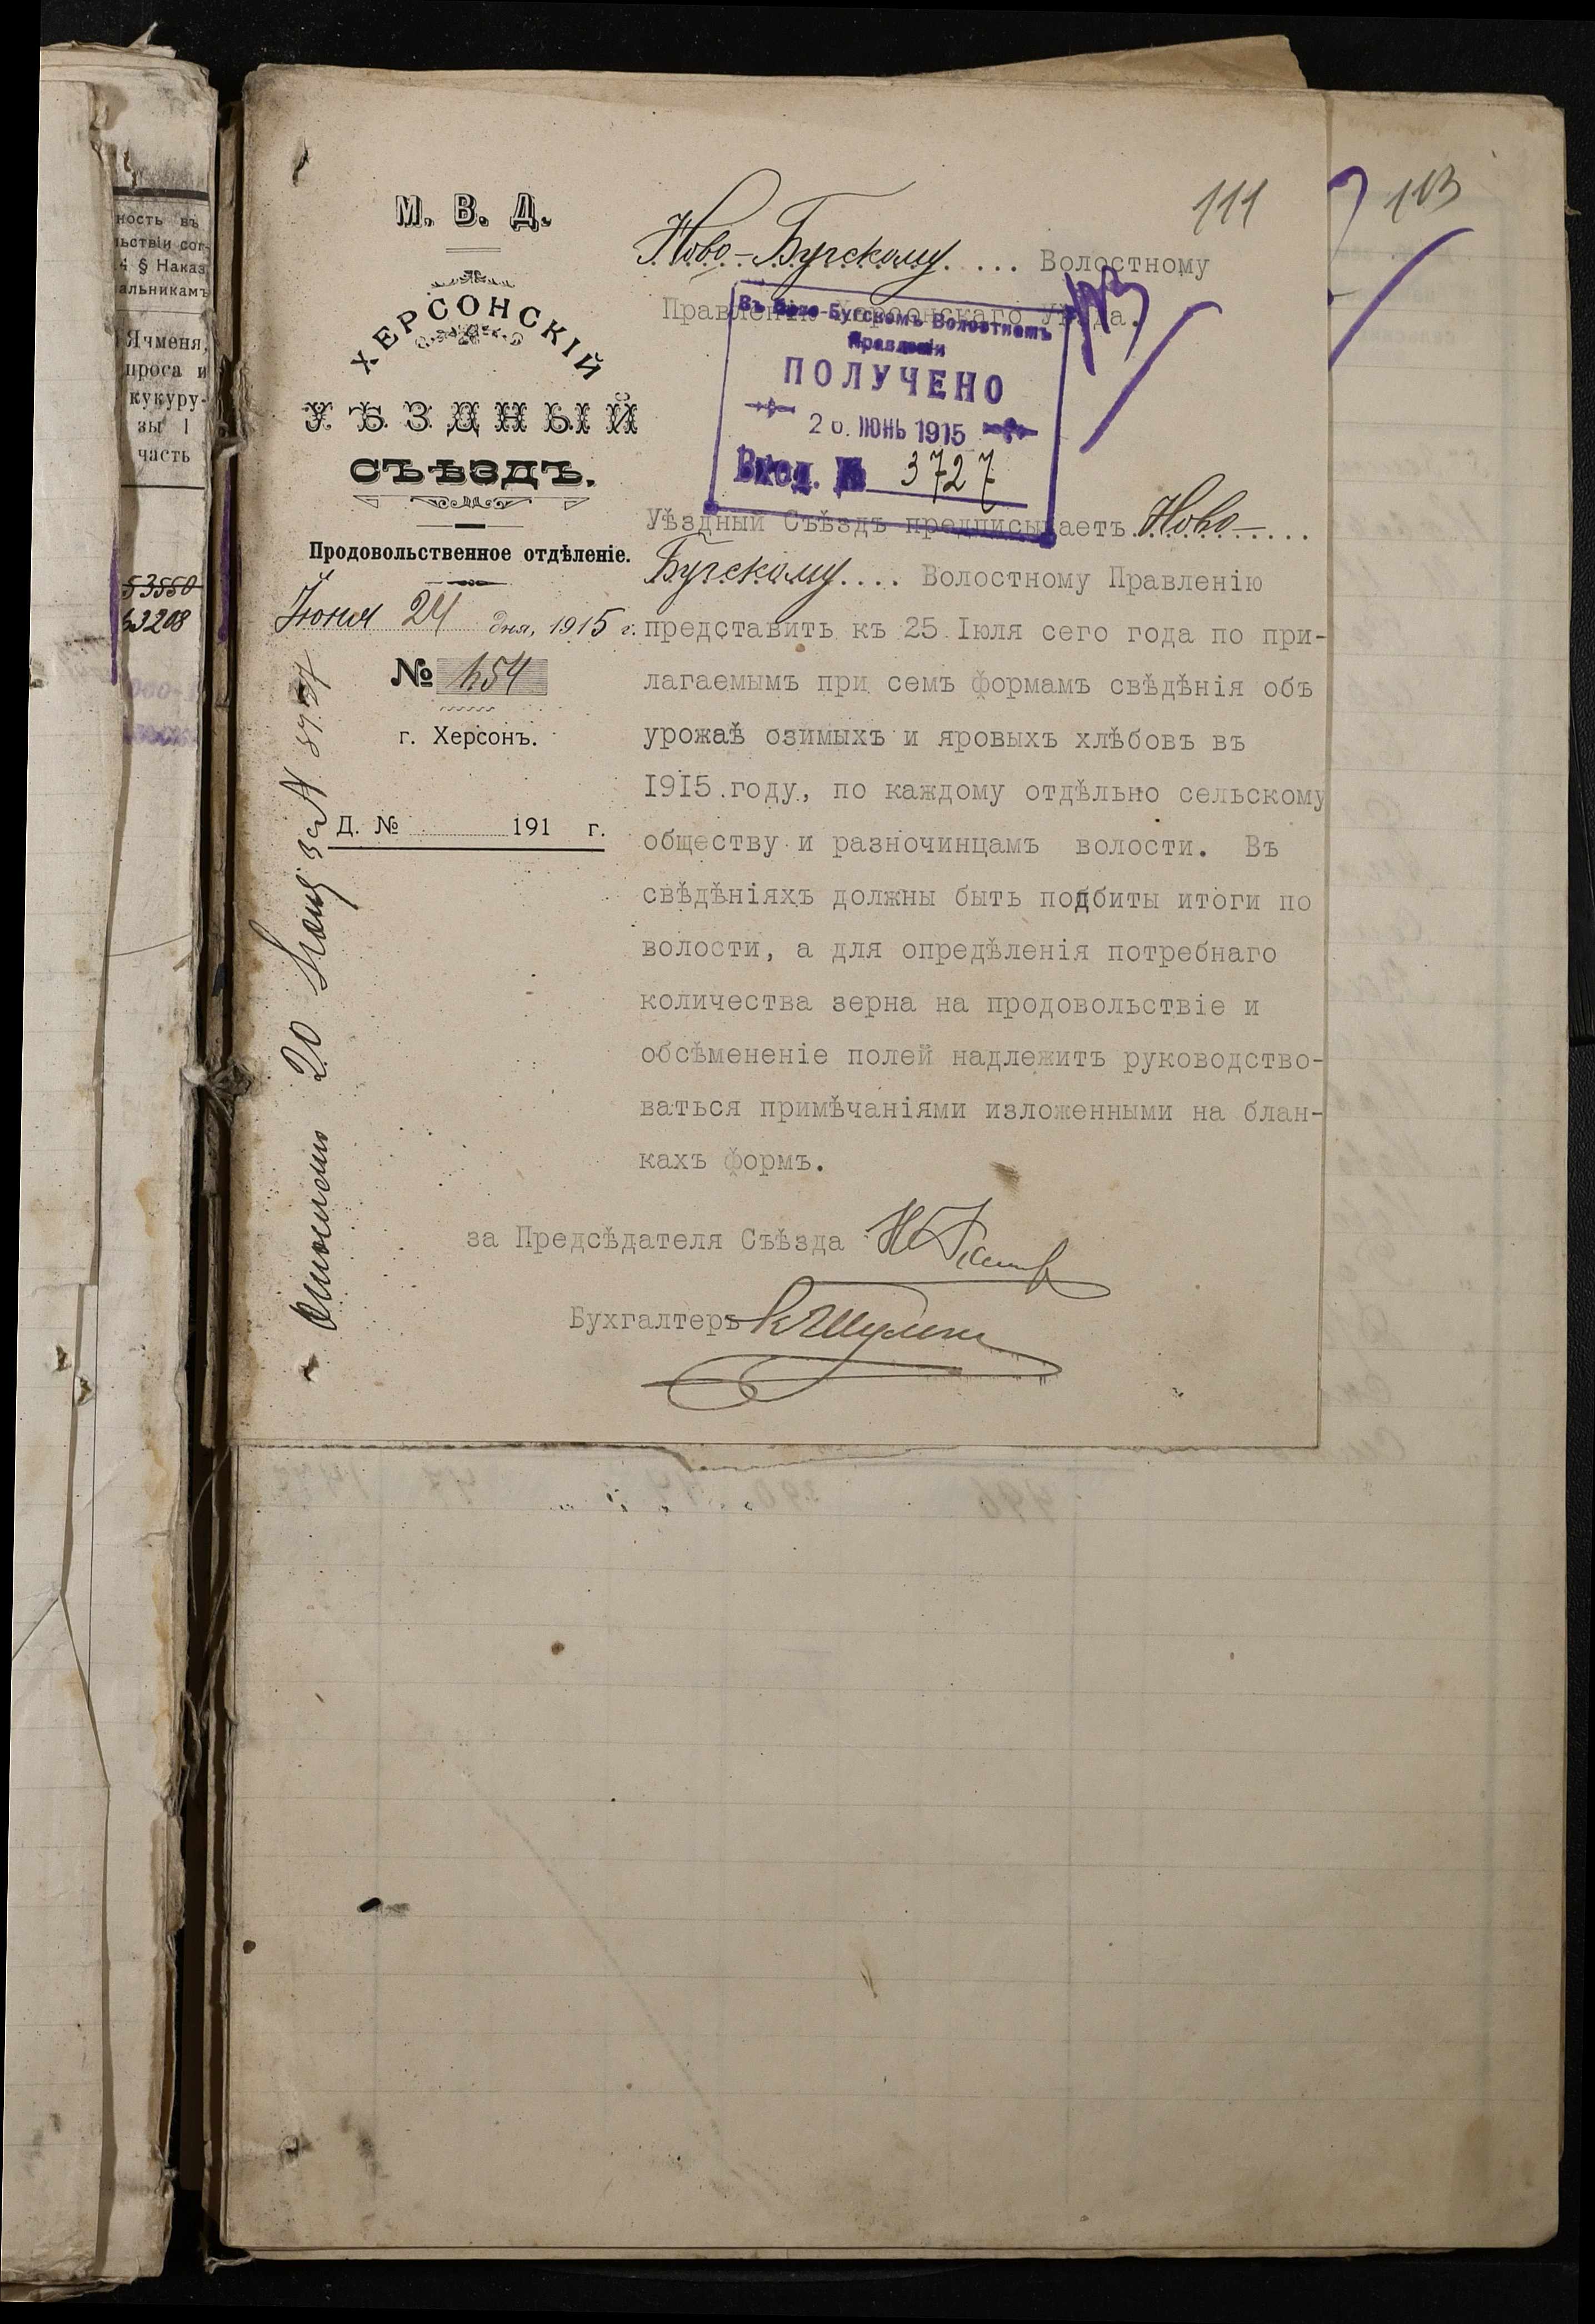 ность въ
4 § Наказ
альникамъ
Ячменя,
проса и
кукуру-
зы 1
часть
53550
53208
М. В. Д.
ХЕРСОНСКІЙ
УѢЗДНЫЙ
СЪѢЗДЪ.
Продовольственное отдѣленіе.
Іюня 24 дня, 1915 г.
№ 1654
г. Херсонъ.
Д. № 191 г.
111
113
Ново-Бугскому.... Волостному
Правленію Херсонскаго Уѣзда.
113
Въ Ново-Бугскомъ Волостномъ
Правленіи
ПОЛУЧЕНО
ІЮНЬ 1915
Вход. № 3727
Уѣздный Съѣздъ предписываетъ Ново-
Бугскому.... Волостному Правленію
представить къ 25 Іюля сего года по при-
лагаемымъ при семъ формамъ свѣдѣнія объ
урожаѣ озимыхъ и яровыхъ хлѣбовъ въ
1915 году, по каждому отдѣльно сельскому
обществу и разночинцамъ волости. Въ
свѣдѣніяхъ должны быть подбиты итоги по
волости, а для опредѣленія потребнаго
количества зерна на продовольствіе и
обсѣмененіе полей надлежитъ руководство-
ваться примѣчаніями изложенными на блан-
кахъ формъ.
за Предсѣдателя Съѣзда
Бухгалтеръ
20 за №